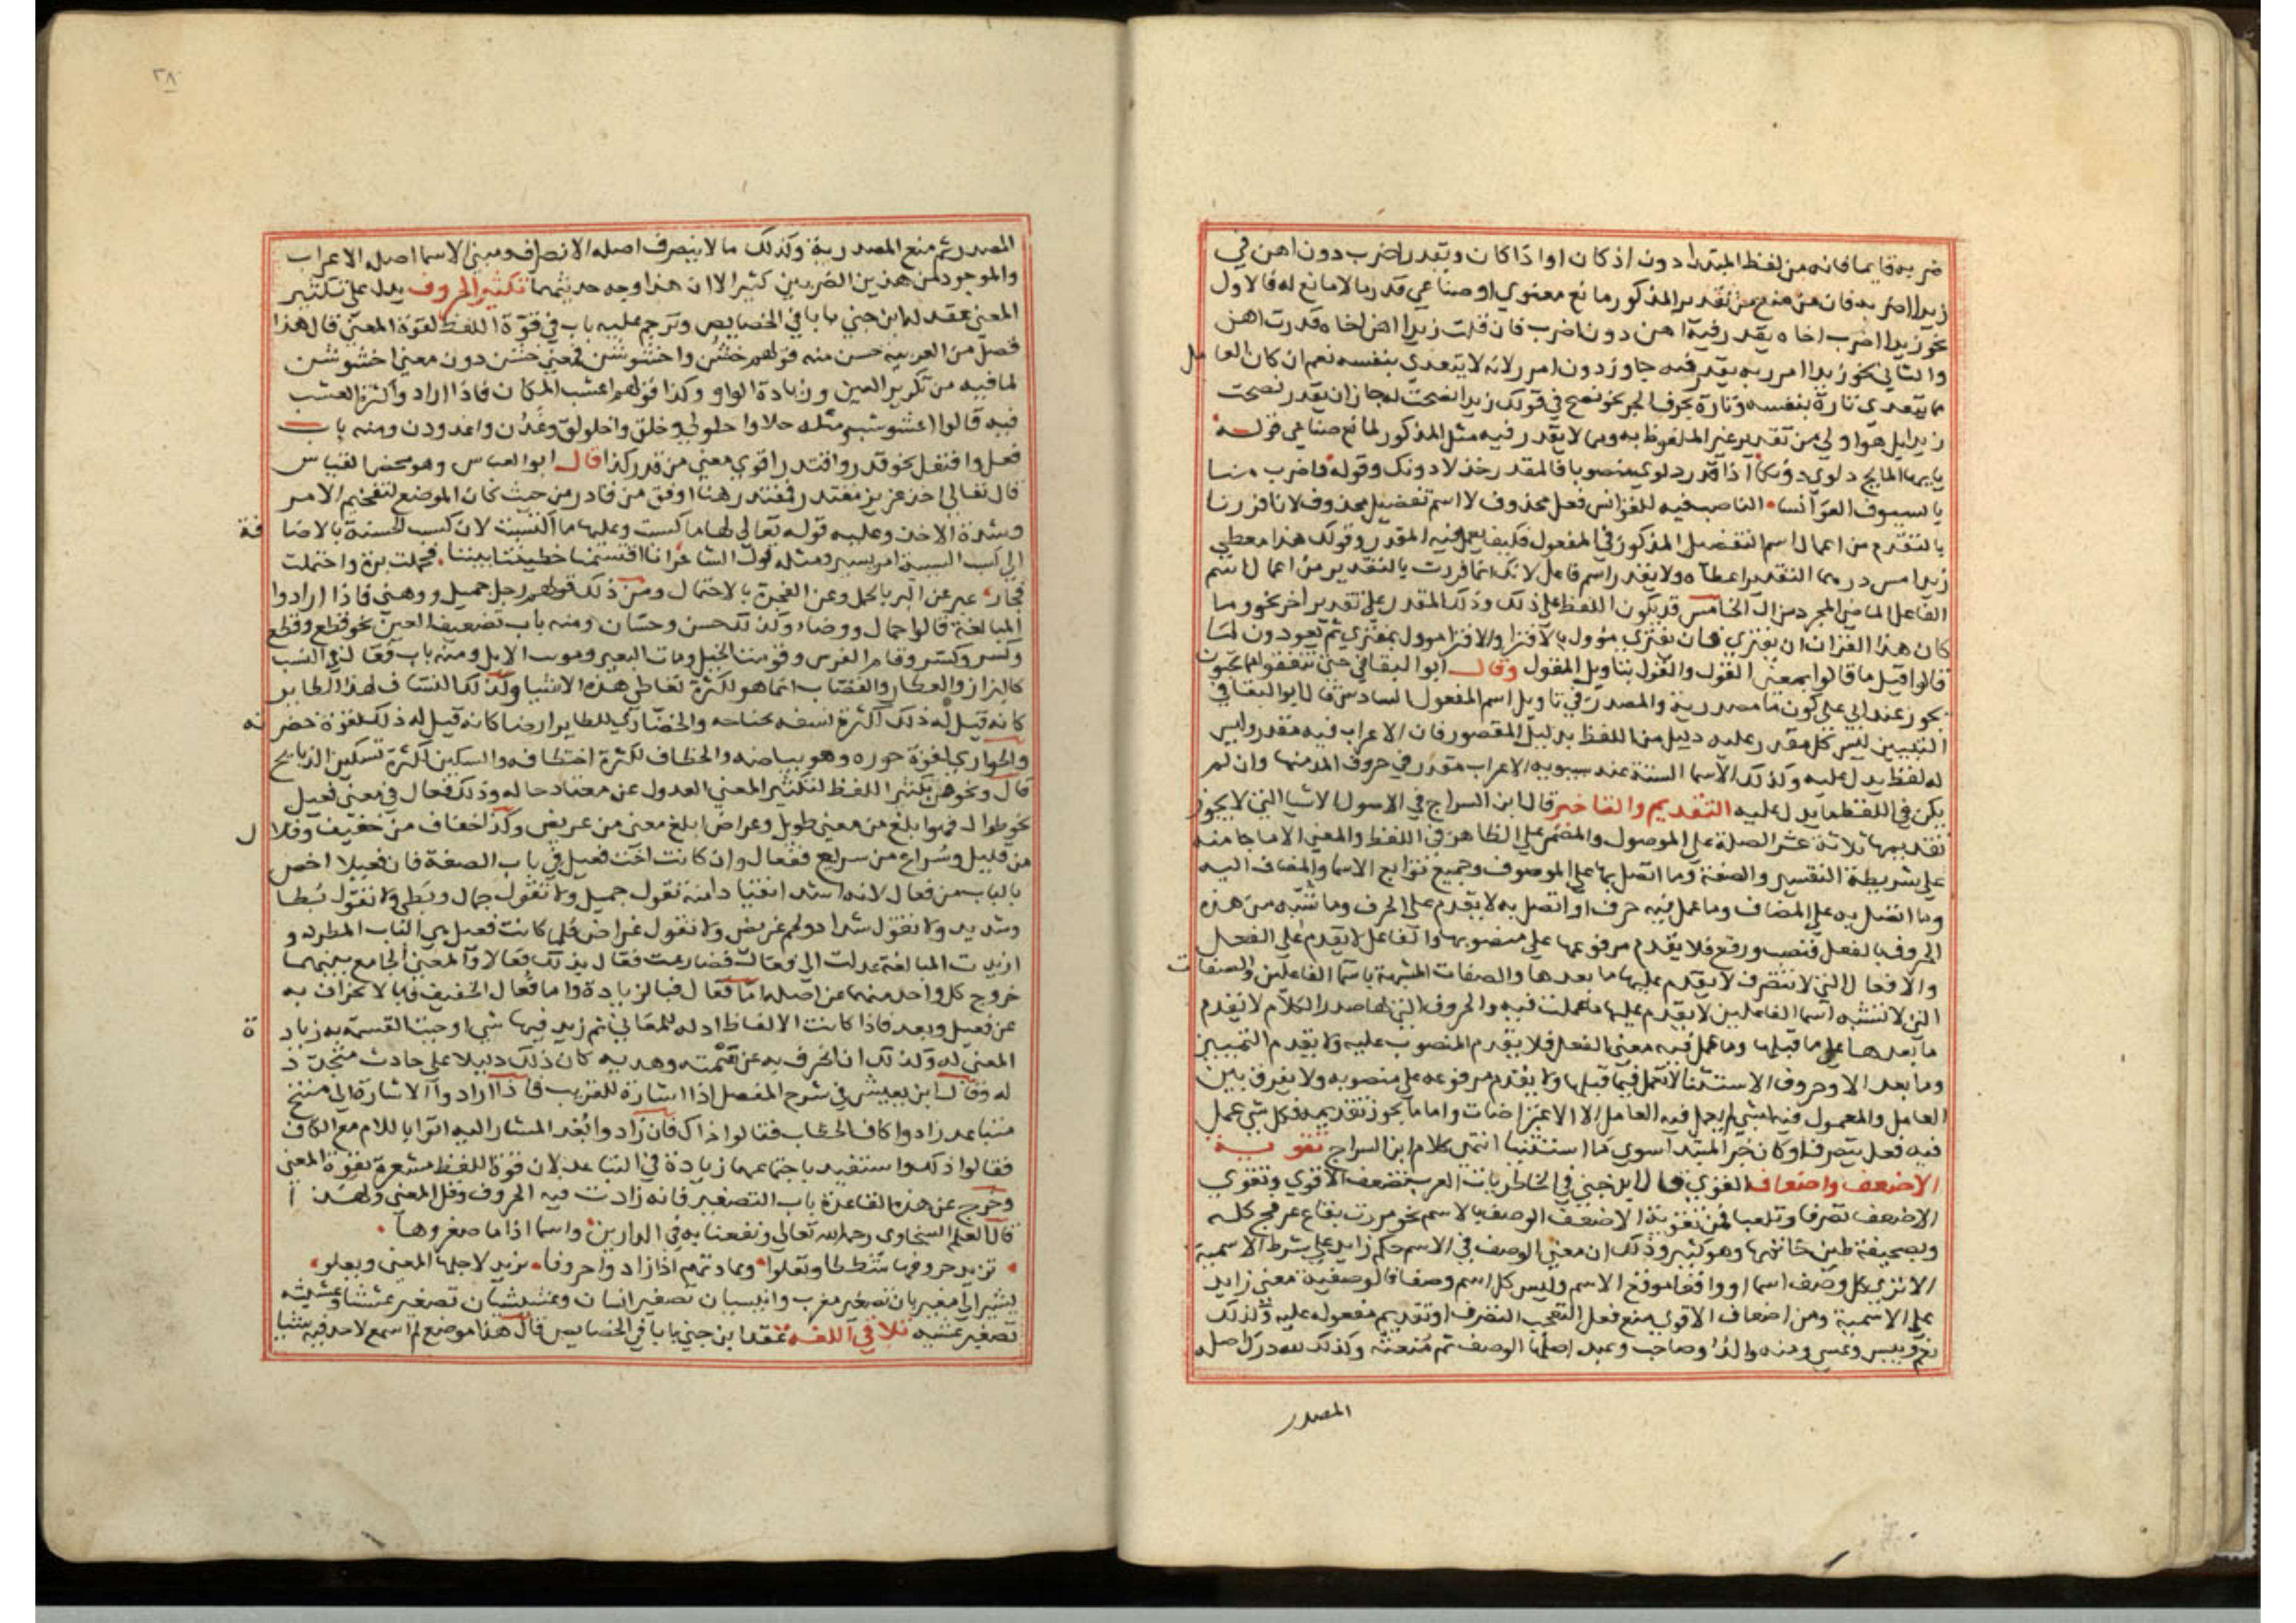 ضربه قايما فانه من لفظ المبتدا دون اذ كان او اذا كان ويقدر اضرب دون اهن في
زيدا اضربه فان منع من تقدير المذكور مانع معنوي او صناعي قدر ما لا مانع له فالاول
نحو زيدا اضرب اخاه يقدر فيه اهن دون اضرب فان قلت زيدا اهن اخاه قدرت اهن
والثاني نحو زيدا امرر به يقدر فيه جاوز دون امرر لانه لا يتعدى بنفسه نعم ان كان العامل
مما يتعدى تارة بنفسه وتارة بحرف الجر نحو نصح في قولك زيدا نصحت له جاز ان يقدر نصحت
زيدا بل هو اولى من تقدير غير الملفوظ به ومما لا يقدر فيه مثل المذكور لمانع صناعي قوله
يايها المايح دلوي دونكا اذا قدر دلوي منصوبا فالمقدر خذ لا دونك وقوله فاضرب منا
بالسيوف القوانسا الناصب فيه للقوانس فعل محذوف لا اسم تفضيل محذوف لانا فررنا
بالتقدم من اعمال اسم التفضيل المذكور في المفعول فكيف يعمل فيه المقدر وقولك هذا معطي
زيدا امس درهما التقدير اعطاه ولا يقدر اسم فاعل لانك انما فررت بالتقدير من اعمال اسم
الفاعل الماضي المجرد من ال الخامس قد يكون اللفظ على ذلك وذلك المقدر على تقدير اخر نحو وما
كان هذا القران ان يفتري فان يفتري مؤول بالافترا والافترا مؤول بمفتري ثم يعودون لما
قالوا قيل ما قالوا بمعنى القول والقول بتاويل المقول وقال ابو البقا في حتى تنفقوا مما تحبون
يجوز عند ابي علي كون ما مصدرية والمصدر في تاويل اسم المفعول السادس قال ابو البقا في
التبيين ليس كل مقدر عليه دليل من اللفظ بدليل المقصور فان الاعراب فيه مقدر وليس
له لفظ يدل عليه وكذلك الاسما الستة عند سيبويه الاعراب مقدر في حروف المد منها وان لم
يكن في اللفظ ما يدل عليه التقديم والتاخير قال ابن السراج في الاصول الاشيا التي لا يجوز
تقديمها ثلاثة عشر الصلة على الموصول والمضمر على الظاهر في اللفظ والمعنى الا ما جا منه
على شريطة التفسير والصفة وما اتصل بها على الموصوف وجميع توابع الاسما والمضاف اليه
وما اتصل به على المضاف وما عمل فيه حرف او اتصل به لا يقدم على الحرف وما شبه من هذه
الحروف بالفعل فنصب ورفع فلا يقدم مرفوعها على منصوبها والفاعل لا يقدم على الفعل
والافعال التي لا تتصرف لا يقدم عليها ما بعدها والصفات المشبهة باسما الفاعلين والصفات
التي لا تشبه اسما الفاعلين لا يقدم عليها ما عملت فيه والحروف التي لها صدر الكلام لا يقدم
ما بعدها على ما قبلها وما عمل فيه معنى الفعل فلا يقدم المنصوب عليه ولا يقدم التمييز
وما بعد الا وحروف الاستثنا لا تعمل فيما قبلها ولا يقدم مرفوعه على منصوبه ولا يفرق بين
العامل والمعمول فيه بشي لم يعمل فيه العامل الا الاعتراضات واما ما يجوز تقديمه فكل شي عمل
فيه فعل يتصرف او كان خبر المبتدا سوي ما استثنينا انتهى كلام ابن السراج تقوية
الاضعف واضعاف القوي قال ابن جني في الخاطريات العرب تضعف الاقوي وتقوي
الاضعف تصرفا وتلعبا فمن تقوية الاضعف الوصف بالاسم نحو مررت بقاع عرفج كله
وبصحيفة طين خاتمها وهو كثير وذلك ان معنى الوصف في الاسم حكم زايد على شرط الاسمية
الا ترى كل وصف اسما او واقعا موقع الاسم وليس كل اسم وصفا فالوصفية معنى زايد
على الاسمية ومن اضعاف الاقوي منع فعل التعجب التصرف او تقديم مفعوله عليه وكذلك
نعم وبيس وعسى ومنه والد وصاحب وعبد اصلها الوصف ثم منعته وكذلك لله درك اصله
المصدر
٢٨
المصدر ثم منع المصدرية وكذلك ما لا ينصرف اصله الانصراف ومبني الاسما اصله الاعراب
والموجود من هذين الضربين كثير الا ان هذا وجه حديثهما تكثير الحروف يدل على تكثير
المعنى عقد له ابن جني بابا في الخصايص وترجم عليه باب في قوة اللفظ لقوة المعنى قال هذا
فصل من العربية حسن منه قولهم خشن واخشوشن فمعنى خشن دون معنى اخشوشن
لما فيه من تكرير العين وزيادة الواو وكذا قولهم اعشب المكان فاذا ارادوا كثرة العشب
فيه قالوا اعشوشب ومثله حلا واحلولى وخلق واخلولق وغدن واغدودن ومنه باب
فعل وافتعل نحو قدر واقتدر اقوي معنى من قدر كذا قال ابو العباس وهو محض القياس
قال تعالى اخذ عزيز مقتدر فمقتدر هنا اوفق من قادر من حيث كان الموضع لتفخيم الامر
وشدة الاخذ وعليه قوله تعالى لها ما كسبت وعليها ما اكتسبت لان كسب الحسنة بالاضافة
الى كسب السيية امر يسير ومثله قول الشاعر انا اقتسمنا خطيتنا بيننا فحملت برة واحتملت
فجار عبر عن البر بالحمل وعن الفجرة بالاحتمال ومن ذلك قولهم رجل جميل ووضي فاذا ارادوا
المبالغة قالوا جمال ووضا وكذلك حسن وحسان ومنه باب تضعيف العين نحو قطع وقطع
وكسر وكسر وقام الفرس وقومت الخيل ومات البعير وموت الابل ومنه باب فعال في النسب
كالبزاز والعطار والقصاب انما هو لكثرة تعاطي هذه الاشيا وكذلك النساف لهذا الطاير
كانه قيل له ذلك لكثرة نسفه بجناحه والخضاري للطاير ايضا كانه قيل له ذلك لقوة خضرته
والحواري لقوة حوره وهو بياضه والخطاف لكثرة اختطافه والسكين لكثرة تسكين الذبايح
قال ونحو من تكثير اللفظ لتكثير المعنى العدول عن معتاد حاله وذلك فعال في معنى فعيل
نحو طوال فهو ابلغ من معنى طويل وعراض ابلغ معنى من عريض وكذا خفاف من خفيف وقلال
من قليل وسراع من سريع ففعال وان كانت اخت فعيل في باب الصفة فان فعيلا اخص
بالباب من فعال لانه اشد انقيادا منه تقول جميل ولا تقول جمال وبطي ولا تقول بطا
وشديد ولا تقول شداد ولحم غريض ولا تقول غراض فلما كانت فعيل هي الباب المطرد و
اريدت المبالغة عدلت الى فعال فضارعت فعال بذلك فعالا والمعنى الجامع بينهما
خروج كل واحد منهما عن اصله اما فعال فبالزيادة واما فعال الخفيف فبالانحراف به
عن فعيل وبعد فاذا كانت الالفاظ ادلة المعاني ثم زيد فيها شي اوجبت القسمة به زيادة
المعنى له وكذلك ان انحرف به عن سمته وهديه كان ذلك دليلا على حادث متجدد
له وقال ابن يعيش في شرح المفصل اذا اشارة للقريب فاذا ارادوا الاشارة الى متنح
متباعد زادوا كاف الخطاب فقالوا ذاك فان زاد وابعد المشار اليه اتوا باللام مع الكاف
فقالوا ذلك واستفيد باجتماعهما زيادة في التباعد لان قوة اللفظ مشعرة بقوة المعنى
وخرج عن هذه القاعدة باب التصغير فانه زادت فيه الحروف وقل المعنى ولهذا
قال العلم السخاوي رحمه الله تعالى ونفعنا به في الدارين واسما اذا ما صغروها
تزيد حروفها شططا وتعلوا وعادتهم اذا زادوا حروفا يزيد لاجلها المعنى ويعلو
يشير الى مغيربان تصغير مغرب وانيسيان تصغير انسان وعشيشيان تصغير عشيا وعشيشية
تصغير عشية تلافي اللغة عقد ابن جني بابا في الخصايص قال هذا موضع لم اسمع لاحد فيه شيا